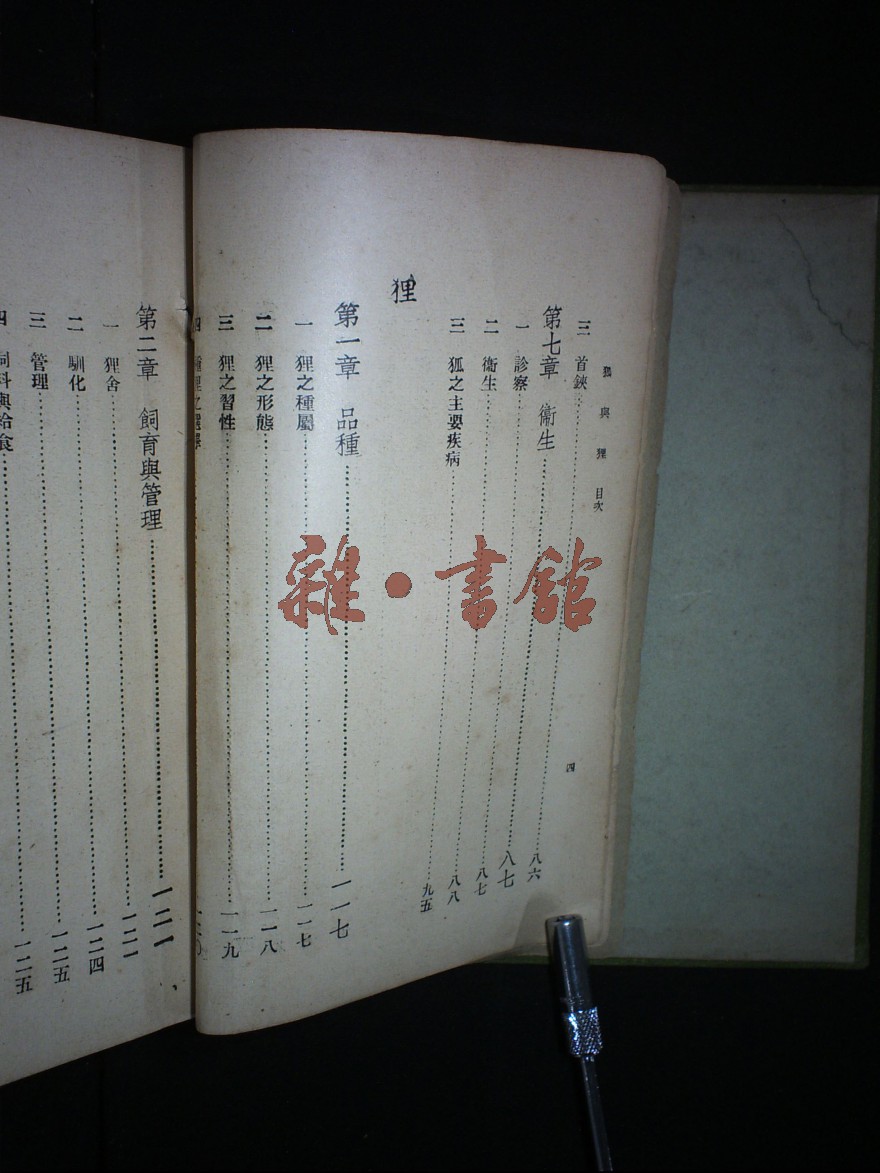 與狸 目次
四
三 首鋏……八六
第七章 衞生……八七
一 診察……八七
二 衞生……八八
三 狐之主要疾病……九五
狸
第一章 品種……一一七
一 狸之種屬……一一七
二 狸之形態……一一八
三 狸之習性……一一九
四 種狸之選擇……一二〇
第二章 飼育與管理……一二一
一 狸舍……一二一
二 馴化……一二四
三 管理……一二五
四 飼料與給食……一二五
雜·書館